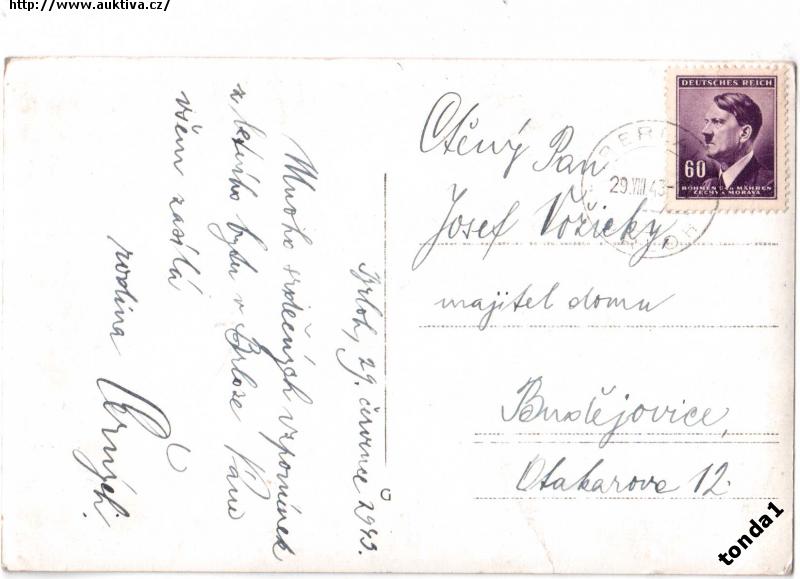 http://www.auktiva.cz/
Brloh, 29. července 1943.
Mnoho srdečných vzpomínek
z letního bytu v Brloze Vám
všem zasílá
rodina Černých.
DEUTSCHES REICH
60
BÖHMEN UND MÄHREN
ČECHY A MORAVA
29.VIII.43
Ctěný Pan
Josef Vožický,
majitel domu
Budějovice,
Otakarova 12.
tonda1